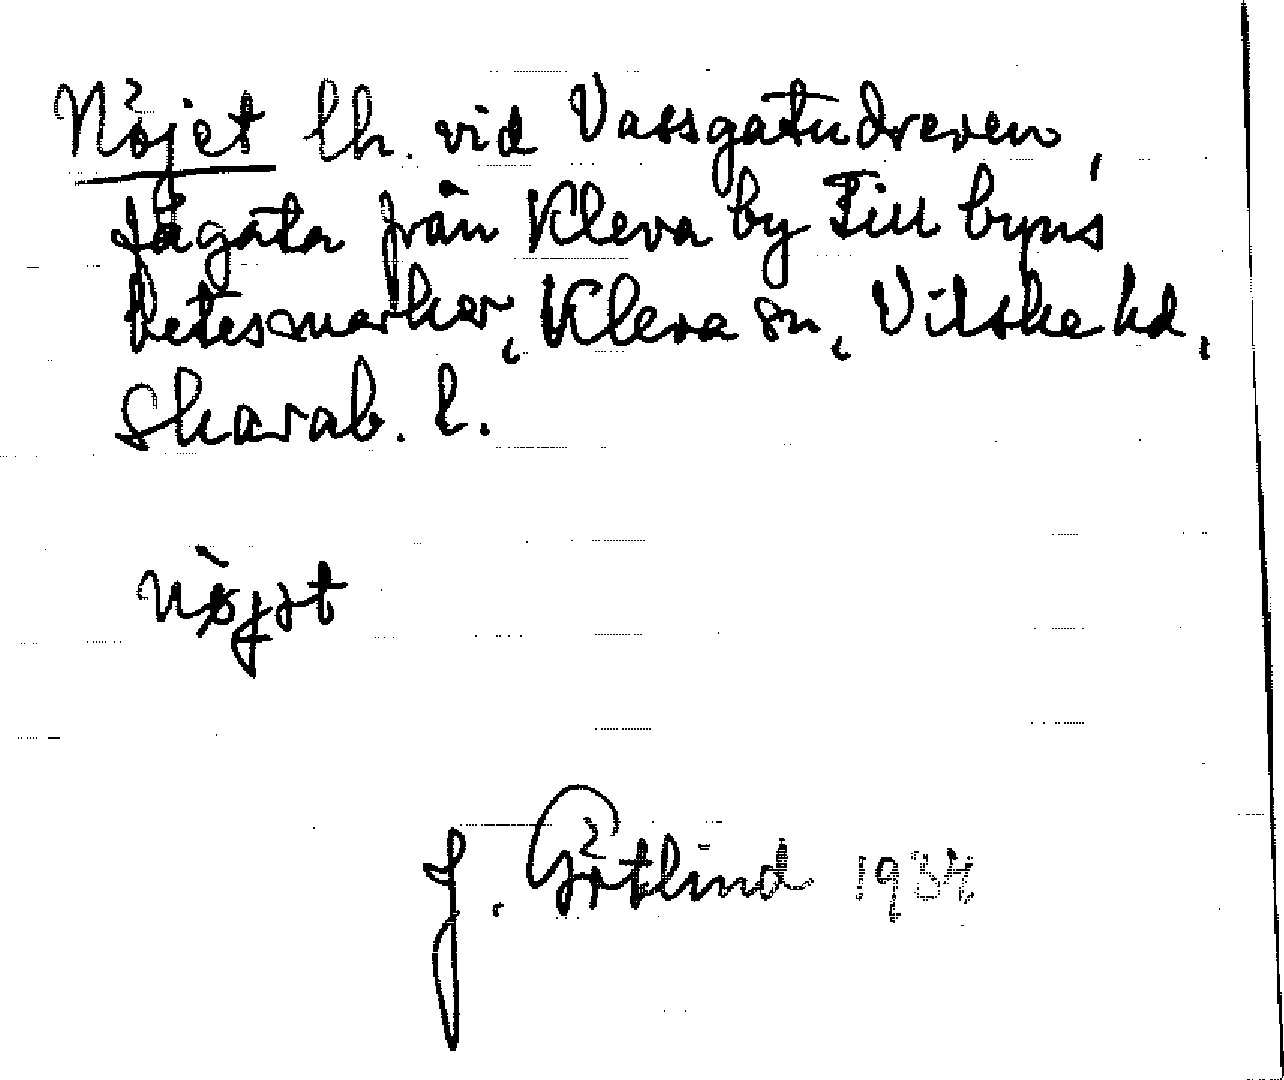 Nöjet lh. vid Vassgatudreven,
fägata från Kleva by till byns
betesmarker, Kleva sn, Vilske hd,
Skarab. l.
J. Götlind 1934